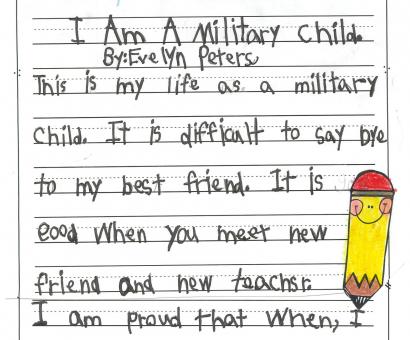 I Am A Military Child.
By: Evelyn Peters
This is my life as a military
Child. It is difficult to say bye
to my best friend. It is
good When you meet new
friend and new teachsr.
I am proud that When, I